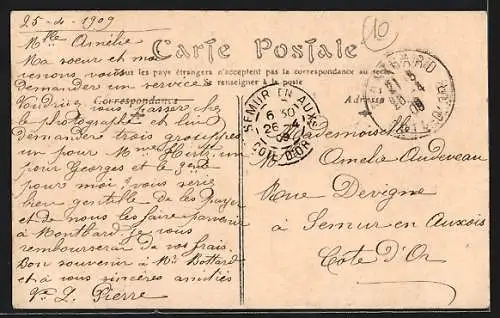 25-4-1909
Mlle Amélie
Ma soeur et moi
venons vous
demander un service
Voudriez vous passer chez
le photographe et lui
demander trois groupes
un pour Mme
pour Georges et le
pour moi, vous serez
bien gentille de les payer
et de nous les faire parvenir
à Montbard. Je vous
rembourserai de vos frais.
Bon souvenir à Mr Bottard
et à vous sincères amitiés
L. Pierre
Carte Postale
Tous les pays étrangers n'acceptent pas la correspondance au recto
se renseigner à la poste
Correspondance
Adresse
10
SEMUR EN AUXOIS
6 30
26 -4
09
COTE D'OR
Mademoiselle
Amélie Audeveau
Rue Devigne
à Semur en Auxois
Côte d'Or